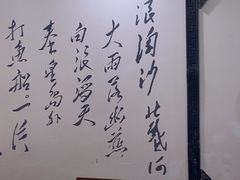 浪淘沙 北戴河
大雨落幽燕
白浪滔天
秦皇岛外
打鱼船。一片